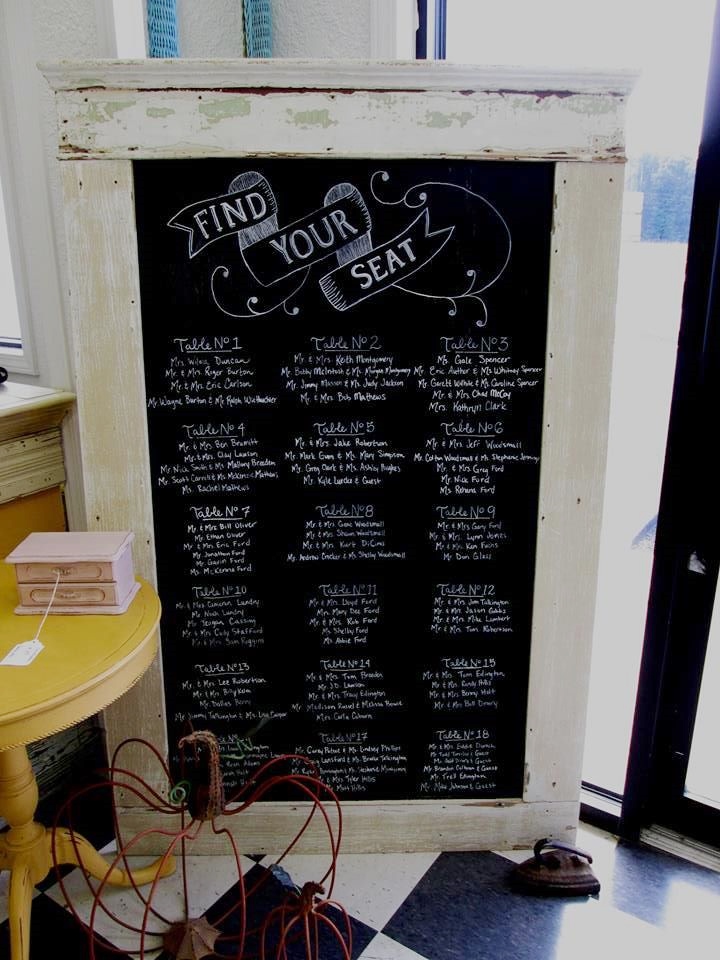 FIND
YOUR
SEAT
Table Nº 1
Mrs. Wilma Duncan
Mr. & Mrs. Roger Burton
Mr. & Mrs. Eric Carlson
Mr. Wayne Burton & Mr. Ralph
Table Nº 2
Mr. & Mrs. Keith Montgomery
Mr. Bobby McIntosh & Ms. Morgan Montgomery
Mr. Jimmy Masson & Ms. Judy Jackson
Mr. & Mrs. Bob Mathews
Table Nº 3
Ms. Gale Spencer
Mr. Eric Author & Ms. Whitney Spencer
Mr. Garett & Ms. Caroline Spencer
Mr. & Mrs. Chad McCoy
Mrs. Kathryn Clark
Table Nº 4
Mr. & Mrs. Ben
Mr. & Mrs. Clay Lawson
Mr. Nick Smith & Ms. Mallory Breeden
Mr. Scott & Ms. McKenzie Mathews
Ms. Rachel Mathews
Table Nº 5
Mr. & Mrs. Jake Robertson
Mr. Mark Evans & Ms. Mary Simpson
Mr. Greg Clark & Ms. Ashley Hughes
Mr. Kyle & Guest
Table Nº 6
Mr. & Mrs. Jeff Woodsmall
Mr. Colton Woodsmall & Ms. Stephanie Jennings
Mr. & Mrs. Greg Ford
Mr. Nick Ford
Ms. Ford
Table Nº 7
Mr. & Mrs. Bill Oliver
Mr. Ethan Oliver
Mr. & Mrs. Eric Ford
Mr. Jonathan Ford
Mr. Gavin Ford
Ms. McKenna Ford
Table Nº 8
Mr. & Mrs. Gene Woodsmall
Mr. & Mrs. Shawn Woodsmall
Mr. & Mrs. Kurt
Mr. Andrew Crocker & Ms. Shelby Woodsmall
Table Nº 9
Mr. & Mrs. Gary Ford
Mr. & Mrs. Lynn Jones
Mr. & Mrs. Ken Fuchs
Mr. Don Glass
Table Nº 10
Mr. & Mrs. Cameron Landry
Mr. Noah Landry
Mr. Teigan Cassing
Mr. & Mrs. Cody Stafford
Mr. & Mrs. Sam Riggins
Table Nº 11
Mr. & Mrs. Lloyd Ford
Mrs. Mary Dee Ford
Mr. & Mrs. Rob Ford
Ms. Shelby Ford
Ms. Abbie Ford
Table Nº 12
Mr. & Mrs. Jim Talkington
Mr. & Mrs. Jason Gibbs
Mr. & Mrs. Mike Lambert
Mr. & Mrs. Tom Robertson
Table Nº 13
Mr. & Mrs. Lee Robertson
Mr. & Mrs. Billy
Mr. Dallas Berry
Talkington & Ms. Lisa Cooper
Table Nº 14
Mr. & Mrs. Tom Breeden
Mr. J.D. Lawson
Mr. & Mrs. Tracy Edington
Mr. Madison Russel & Melissa Rowe
Mrs. Carla Coburn
Table Nº 15
Mr. & Mrs. Tom Edington
Mr. & Mrs. Randy Hillis
Mr. & Mrs. Benny Holt
Mr. & Mrs. Bill Dowry
Table Nº 17
Mr. Corey & Ms. Lindsey Phillips
Lunsford & Ms. Brooke Talkington
Mr. & Mrs. Tyler Hillis
Matt Hillis
Table Nº 18
Mr. & Mrs. Eddie
Mr. Todd & Guest
& Guest
Mr. Brandon Coltman & Guest
Mr. Trell Edington
Mr. Mike Johnson & Guest